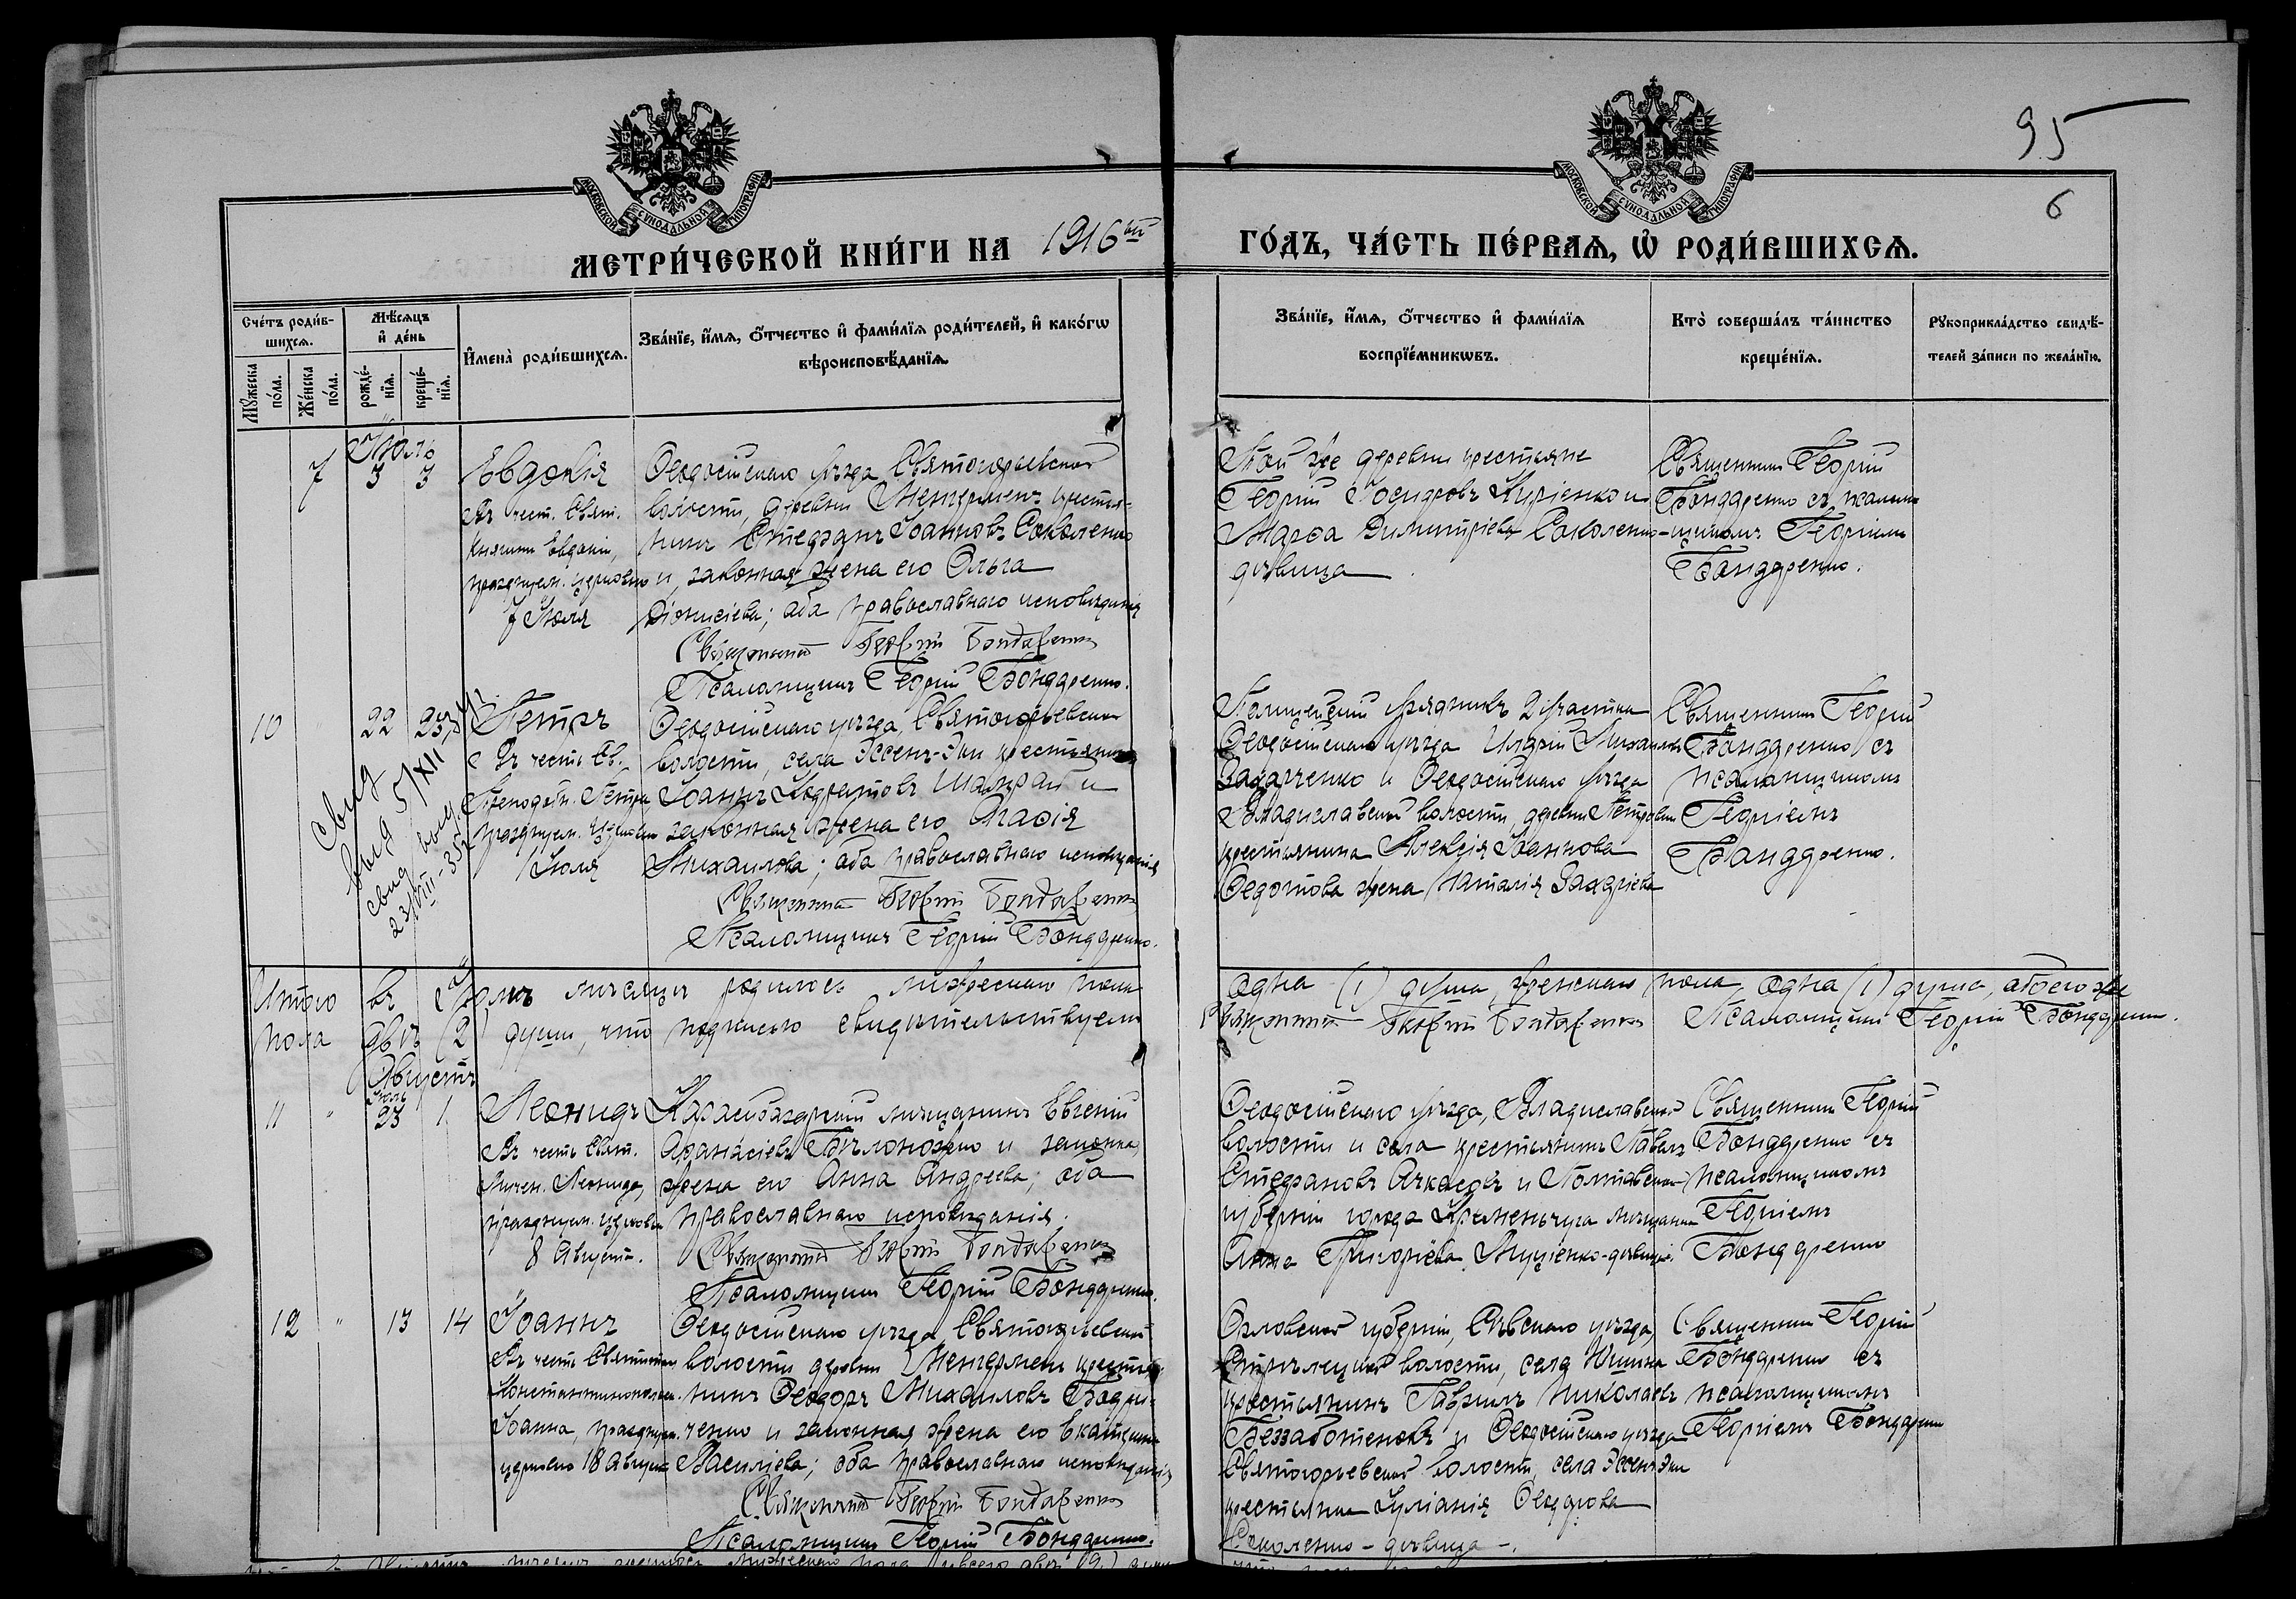 95
6
МОСКОВСКОЙ СѴНОДАЛЬНОЙ ТИПОГРАФІИ
МОСКОВСКОЙ СѴНОДАЛЬНОЙ ТИПОГРАФІИ
МЕТРИ́ЧЕСКОЙ КНИ́ГИ НА 1916ый ГО́ДЪ, ЧА́СТЬ ПЕ́РВАѦ, Ѡ҆ РОДИ́ВШИХСѦ.
Сче́тъ роди́в-
шихсѧ.
Мѣ́сѧцъ
и҆ де́нь
Мꙋ́жеска
по́ла.
Же́нска
по́ла.
рожде́-
нїѧ.
креще́-
нїѧ.
И҆мена̀ роди́вшихсѧ.
Зва́нїе, и҆́мѧ, ѻ҆́тчество и҆ фами́лїѧ роди́телей, и҆ како́гѡ
вѣроисповѣ́данїѧ.
Зва́нїе, и҆́мѧ, ѻ҆́тчество и҆ фами́лїѧ
воспрїе́мникѡвъ.
Кто̀ соверша́лъ та́инство
креще́нїѧ.
Рꙋкоприкла́дство свидѣ́-
телей за́писи по жела́нїю.
Іюль
7 3 3
Евдокія
Въ чест. Свят.
Княгини Евдокіи,
празднуем. церковью
7 Іюля
Ѳеодосійскаго уѣзда, Святогорьевской
волости, деревни Менгерменъ крестья-
нинъ Стефанъ Іоанновъ Соколенко
и законная жена его Ольга
Діонисіева; оба православнаго исповѣданія
Священникъ Георгій Бондаренко
Псаломщикъ Георгій Бондаренко.
Той же деревни крестьяне
Георгій Исидоровъ Киріенко и
Марѳа Димитріева Соколенко-
дѣвица
Священникъ Георгій
Бондаренко съ псалом-
щикомъ Георгіемъ
Бондаренко.
10 " 22 23
Петръ
Въ честь Св.
Преподобн. Петра
празднуем. Церковью
Іюля
свид
выд 5/XII
свид выд
23/VIII-35
Ѳеодосійскаго уѣзда, Святогорьевской
волости, села Эссенъ-Эки крестьянинъ
Іоаннъ Кодратовъ и
законная жена его Агаѳія
Михаилова; оба православнаго исповѣданія
Священникъ Георгій Бондаренко
Псаломщикъ Георгій Бондаренко.
Полицейскій урядникъ 2 участка
Ѳеодосійскаго уѣзда Михаиловъ
Захарченко и Ѳеодосійскаго уѣзда
Владиславской волости, деревни Петровки
крестьянина Алексія Іоаннова
Ѳедотова жена Наталія Захаріева
Священникъ Георгій
Бондаренко съ
псаломщикомъ
Георгіемъ
Бондаренко.
Итого въ Іюлѣ мѣсяцѣ родилось мужескаго пола одна (1) душа, женскаго пола одна (1) душа, обоего же
пола двѣ (2) души, что подписью свидѣтельствуемъ Священникъ Георгій Бондаренко Псаломщикъ Георгій Бондаренко.
Августъ
Іюль
11 " 23 1
Леонидъ
Въ честь Свят.
Мучен. Леонида,
празднуем. церковью
8 Августа.
Карасубазарскій мѣщанинъ Евгеній
Аѳанасіевъ Бѣлоножко и законная
жена его Анна Андреева; оба
православнаго исповѣданія.
Священникъ Георгій Бондаренко
Псаломщикъ Георгій Бондаренко.
Ѳеодосійскаго уѣзда, Владиславской
волости и села крестьянинъ Павелъ
Стефановъ и Полтавской
губерніи города Кременчуга мѣщанка
Анна Григоріева дѣвица.
Священникъ Георгій
Бондаренко съ
псаломщикомъ
Георгіемъ
Бондаренко
12 " 13 14
Іоаннъ
Въ честь Святителя
Константинопольск.
Іоанна, празднуем.
церковью 18 Августа
Ѳеодосійскаго уѣзда Святогорьевской
волости деревни Менгерменъ крестья-
нинъ Ѳеодоръ Михаиловъ Бодри-
ченко и законная жена его Екатерина
Василіева; оба православнаго исповѣданія
Священникъ Георгій Бондаренко
Псаломщикъ Георгій Бондаренко.
Орловской губерніи, Сѣвскаго уѣзда,
Стрѣлецкой волости, села Юшина
крестьянинъ Гавріилъ Николаевъ
Беззаботеновъ и Ѳеодосійскаго уѣзда
Святогорьевской волости, села Эссенъ-Эки
крестьянка Іуліанія Ѳеодорова
Соколенко - дѣвица -.
Священникъ Георгій
Бондаренко съ
псаломщикомъ
Георгіемъ Бондаренко